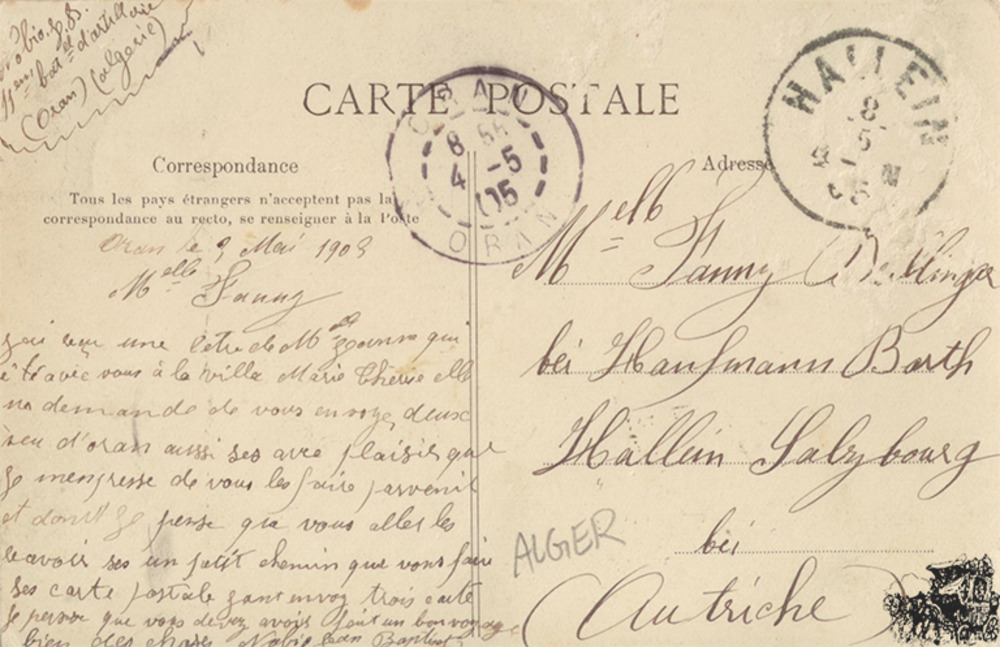 11em bat d'artillerie
(Oran) (algerie)
CARTE POSTALE
ORAN
8 55
4 -5
05
ORAN
HALLEIN
8
5
05 N
Correspondance
Tous les pays étrangers n'acceptent pas la
correspondance au recto, se renseigner à la Poste
Oran le Mai 190
Melle Fanny
jai une letre de M qui
été avec vous à la villa Marie Therese elle
ma demande de vous envoye deux
veu d'oran aussi ses avec plaisir que
je mempresse de vous les faire parvenir
et dont je pense que vous alles les
ses un petit chemin que vous faire
ses carte postale jant envoy trois carte
je pense que vous devez avoir fait un bon voyage
bien des choses Baptiste
Adresse
Melle Fanny
bei Kaufmann Barth
Hallein Salzbourg
bei
(Autriche)
ALGER